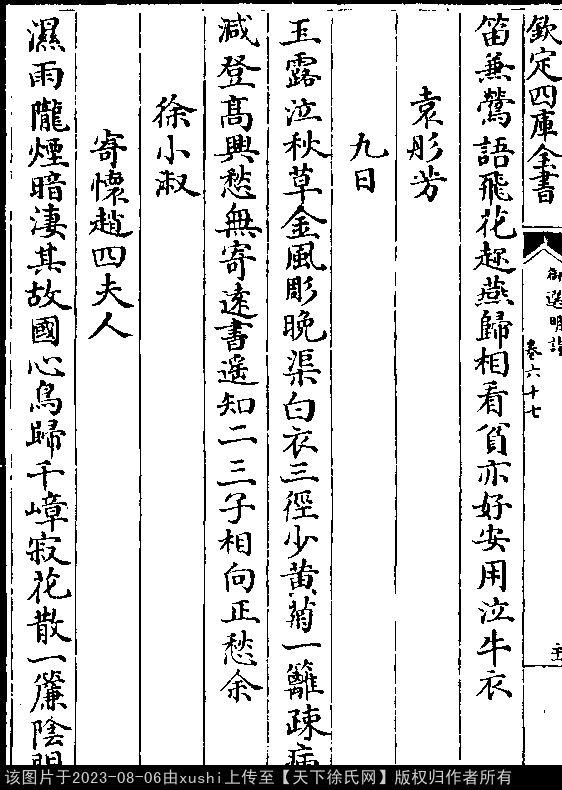 欽定四庫全書
御選明詩
卷六十七
笛兼鶯語飛花趂燕歸相看貧亦好安用泣牛衣
袁彤芳
九日
玉露泣秋草金風彫晚渠白衣三徑少黄菊一籬疎病
減登髙興愁無寄逺書遥知二三子相向正愁余
徐小淑
寄懷趙四夫人
濕雨隴煙暗淒其故國心鳥歸千嶂寂花散一簾陰
该图片于2023-08-06由xushi上传至【天下徐氏网】版权归作者所有